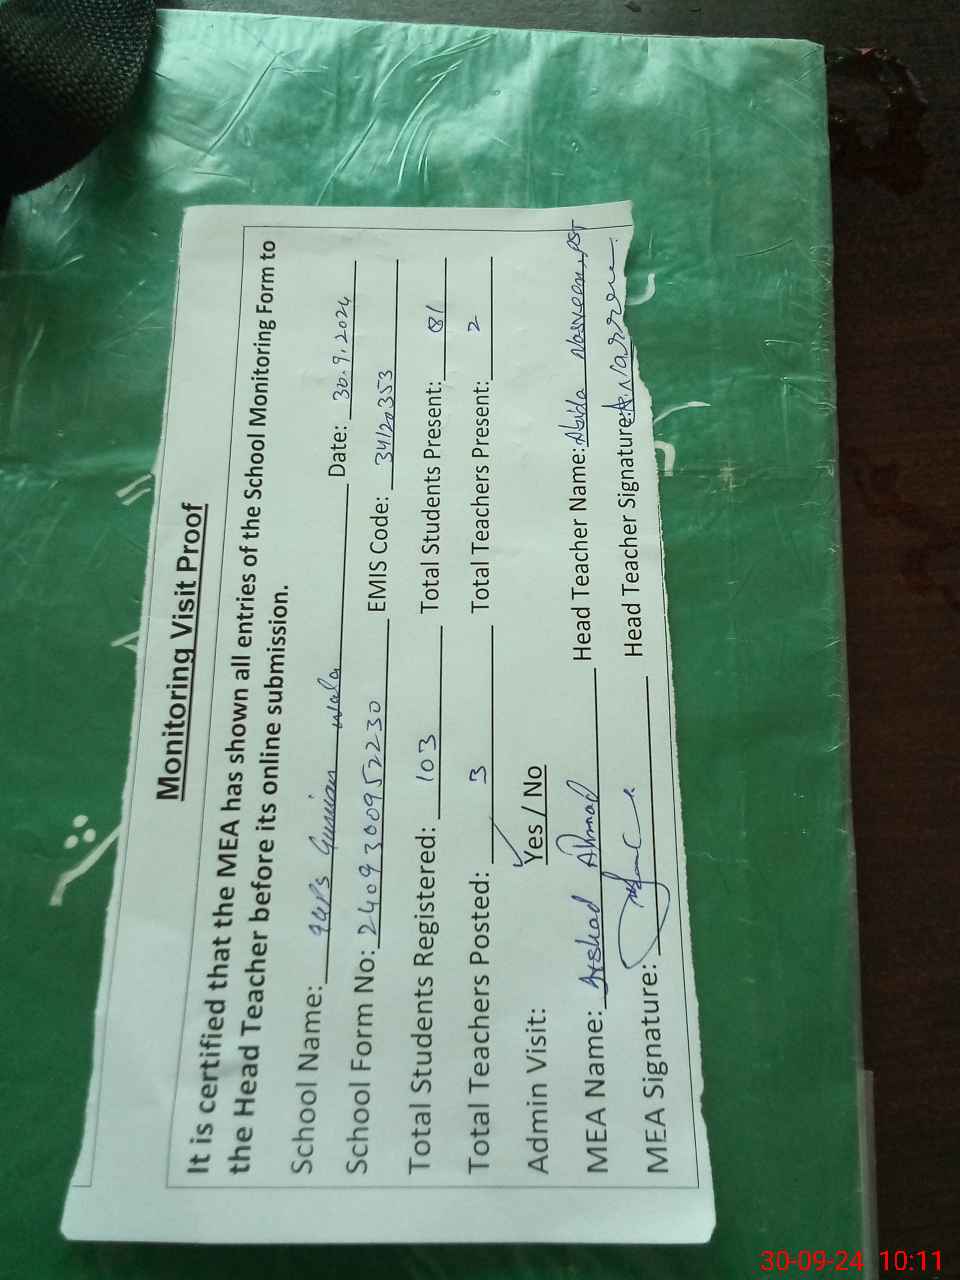 Monitoring Visit Proof
It is certified that the MEA has shown all entries of the School Monitoring Form to
the Head Teacher before its online submission.
School Name: GGPS Gunian wala Date: 30.9.2024
School Form No: 2409300952230 EMIS Code: 34120353
Total Students Registered: 103 Total Students Present: 81
Total Teachers Posted: 3 Total Teachers Present: 2
Admin Visit: Yes / No
MEA Name: Arshad Ahmad Head Teacher Name: Abida Nasreen, PST
MEA Signature: Head Teacher Signature:
30-09-24 10:11